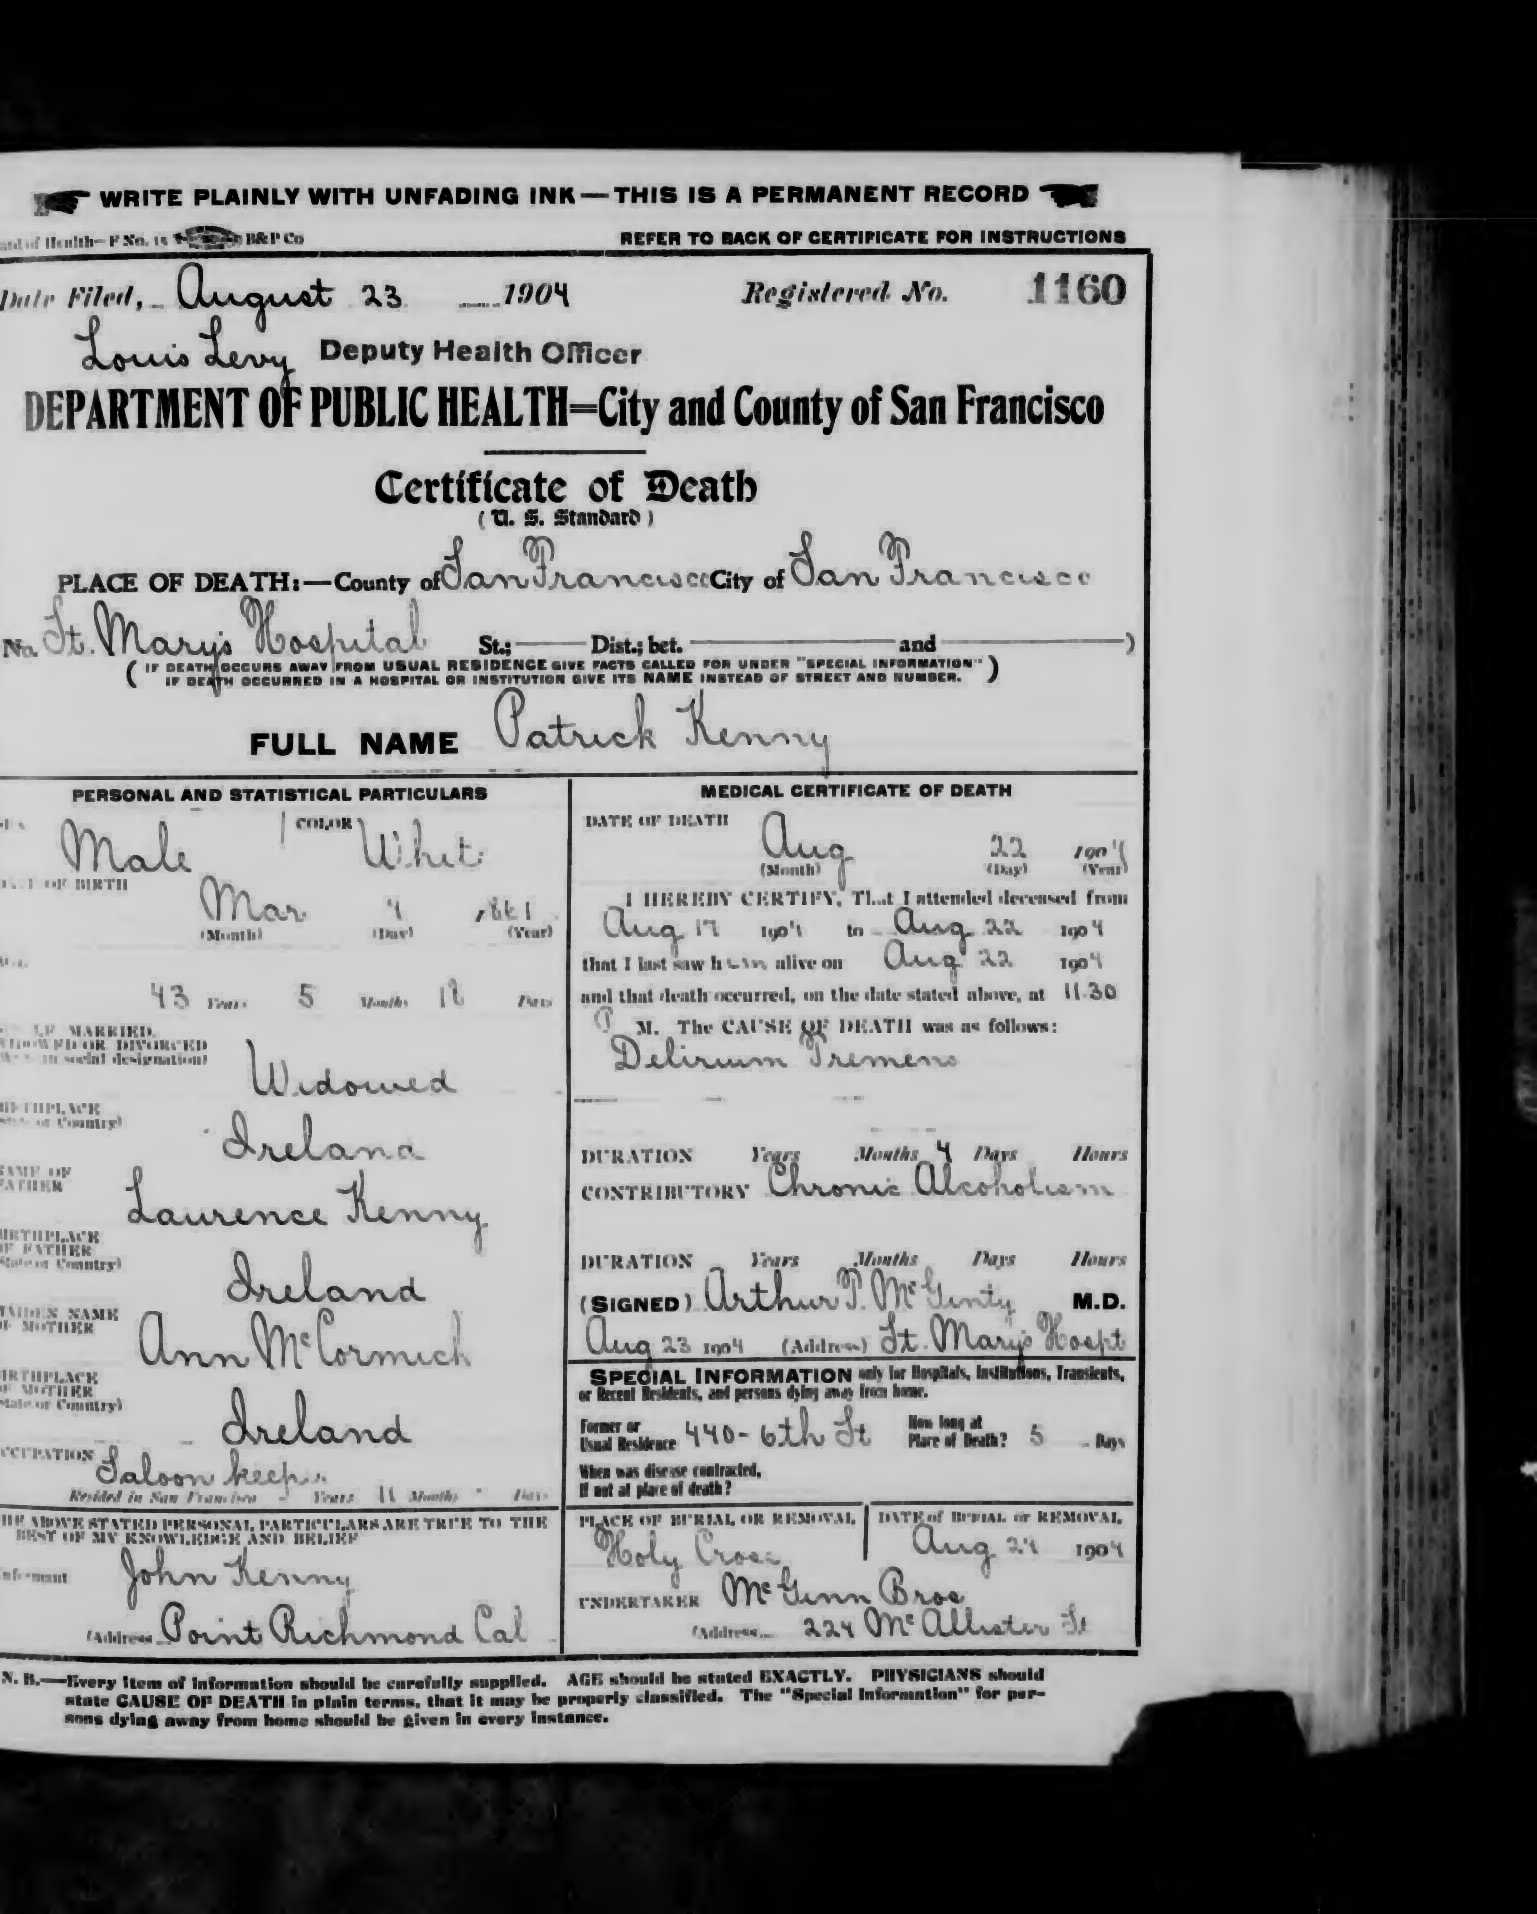 WRITE PLAINLY WITH UNFADING INK — THIS IS A PERMANENT RECORD
of Health—F No. 15 B&P Co REFER TO BACK OF CERTIFICATE FOR INSTRUCTIONS
Date Filed, August 23 1904 Registered No. 1160
Louis Levy Deputy Health Officer
DEPARTMENT OF PUBLIC HEALTH=City and County of San Francisco
Certificate of Death
(U. S. Standard)
PLACE OF DEATH:—County of San Francisco City of San Francisco
No. St. Mary's Hospital St.; Dist.; bet. and )
( IF DEATH OCCURS AWAY FROM USUAL RESIDENCE GIVE FACTS CALLED FOR UNDER "SPECIAL INFORMATION" )
IF DEATH OCCURRED IN A HOSPITAL OR INSTITUTION GIVE ITS NAME INSTEAD OF STREET AND NUMBER.
FULL NAME Patrick Kenny
PERSONAL AND STATISTICAL PARTICULARS
COLOR
Male White
OF BIRTH
Mar 4
(Month) (Day) (Year)
43 Years 5 Months 18 Days
MARRIED,
WIDOWED OR DIVORCED
in social designation)
Widowed
BIRTHPLACE
(State or Country)
Ireland
NAME OF
FATHER
Laurence Kenny
BIRTHPLACE
OF FATHER
(State or Country)
Ireland
MAIDEN NAME
OF MOTHER
Ann McCormick
BIRTHPLACE
OF MOTHER
(State or Country)
Ireland
OCCUPATION Saloon keeper
Resided in San Francisco - Years 11 Months - Days
THE ABOVE STATED PERSONAL PARTICULARS ARE TRUE TO THE
BEST OF MY KNOWLEDGE AND BELIEF
Informant John Kenny
(Address Point Richmond Cal
MEDICAL CERTIFICATE OF DEATH
DATE OF DEATH
Aug 22 1904
(Month) (Day) (Year)
I HEREBY CERTIFY, That I attended deceased from
Aug 17 1904 to Aug 22 1904
that I last saw him alive on Aug 22 1904
and that death occurred, on the date stated above, at 11.30
P M. The CAUSE OF DEATH was as follows:
Delirium Tremens
DURATION Years Months 4 Days Hours
CONTRIBUTORY Chronic Alcoholism
DURATION Years Months Days Hours
(SIGNED) Arthur P. McGinty M.D.
Aug 23 1904 (Address) St. Mary's Hospt
SPECIAL INFORMATION only for Hospitals, Institutions, Transients,
or Recent Residents, and persons dying away from home.
Former or
Usual Residence 440-6th St
How long at
Place of Death? 5 Days
When was disease contracted,
If not at place of death?
PLACE OF BURIAL OR REMOVAL
Holy Cross
DATE of BURIAL or REMOVAL
Aug 24 1904
UNDERTAKER McGinn Bros
(Address 224 McAllister St
N. B.—Every item of information should be carefully supplied. AGE should be stated EXACTLY. PHYSICIANS should
state CAUSE OF DEATH in plain terms, that it may be properly classified. The "Special Information" for per-
sons dying away from home should be given in every instance.